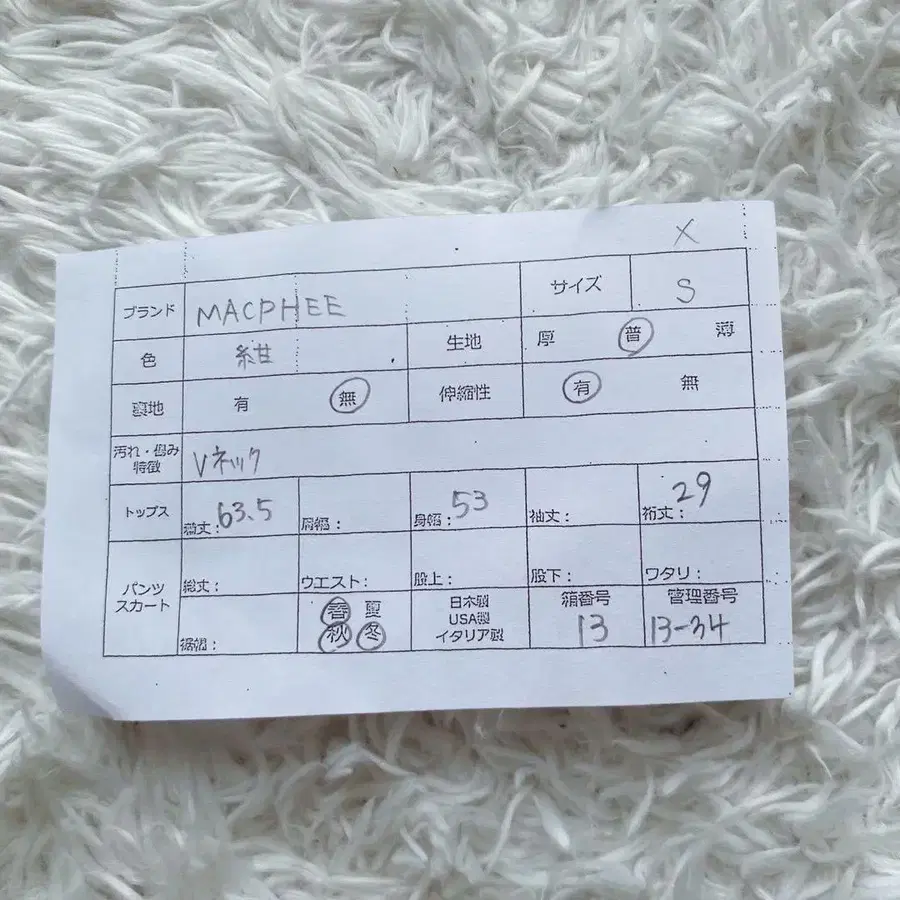 X
ブランド MACPHEE サイズ S
色 紺 生地 厚 普 薄
裏地 有 無 伸縮性 有 無
汚れ・傷み
特徴 Vネック
トップス 着丈:63.5 肩幅: 身幅:53 袖丈: 裄丈:29
パンツ
スカート 総丈: ウエスト: 股上: 股下: ワタリ:
裾幅: 春 夏
秋 冬
日本製
USA製
イタリア製
箱番号
13
管理番号
13-34